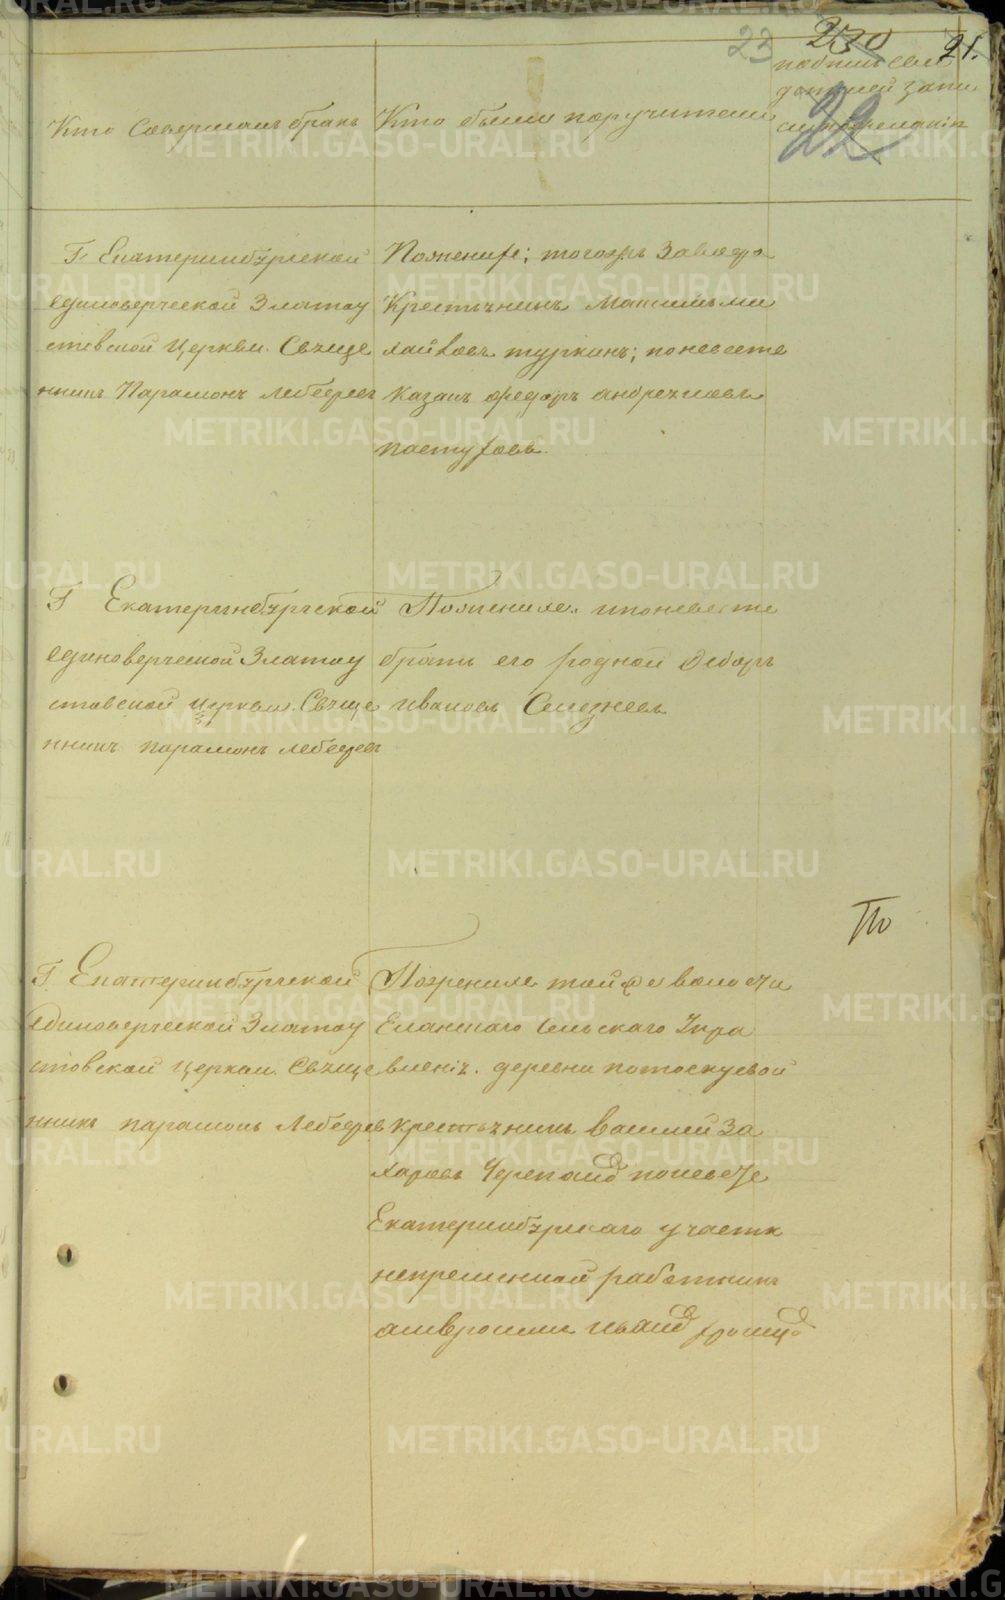 23 230 21.
22
Кто Совершалъ бракъ
Кто были поручители
подпись сви
детелей запи
Г. Екатеринбургской
единоверческой Златоу
стовской Церкви. Свяще
нникъ Парамонъ Лебедевъ
Пожениху; тогожъ Завода
Крестьянинъ Максимъ Ми
хайловъ туркинъ; поневесте
казакъ федоръ андреяновъ
пастуховъ.
Г Екатеринбургской
единоверческой Златоу
стовской церкви. Свяще
нникъ парамонъ лебедевъ
Пожениху. ипоневесте
братъ его родной
ивановъ Селезневъ
То
Г. Екатеринбургской
единоверческой Златоу
стовской церкви. Свяще
нникъ парамонъ Лебедевъ
Пожениху тойже волости
Еланскаго сельскаго Упра
вленія. деревни потоскуевой
крестьянинъ василей За
харовъ Черепанов поневесте
Екатеринбурскаго участка
непременной работникъ
амвросим иванов
METRIKI.GASO-URAL.RU